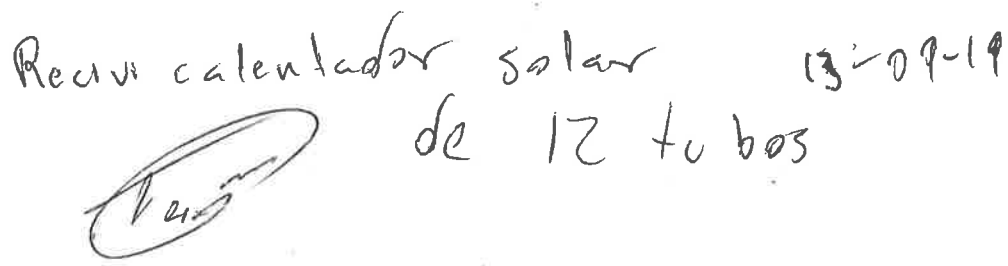 Recivi calentador solar 13-09-19
de 12 tubos